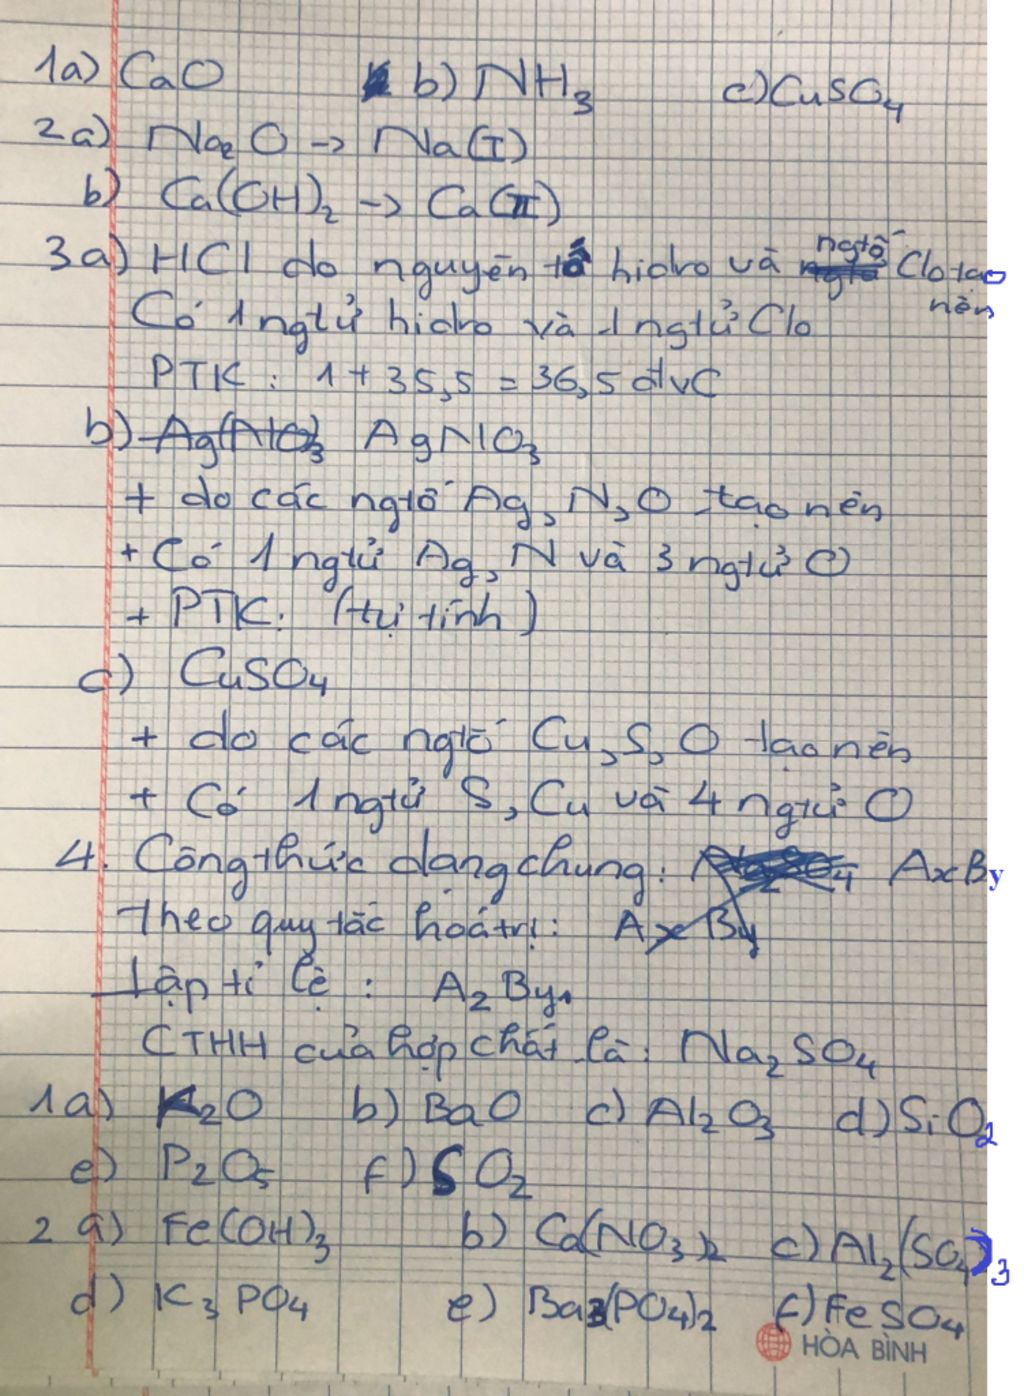 1a) CaO b) NH3 c) CuSO4
2a) Na2O -> Na(I)
b) Ca(OH)2 -> Ca(II)
3a) HCl do nguyên tố hidro và ngtố Clo tạo nên
Có 1 ngtử hidro và 1 ngtử Clo
PTK : 1 + 35,5 = 36,5 đvC
b) Ag(NO3 AgNO3
+ do các ngtố Ag, N, O tạo nên
+ Có 1 ngtử Ag, N và 3 ngtử O
+ PTK: (tự tính)
c) CuSO4
+ do các ngtố Cu, S, O tạo nên
+ Có 1 ngtử S, Cu và 4 ngtử O
4. Công thức dạng chung: AxBy
Theo quy tắc hoá trị: AxBy
Lập tỉ lệ : A2By1
CTHH của hợp chất là: Na2SO4
1a) K2O b) BaO c) Al2O3 d) SiO2
e) P2O5 f) SO2
2 a) Fe(OH)3 b) Ca(NO3)2 c) Al2(SO4)3
d) K3PO4 e) Ba3(PO4)2 f) FeSO4
HÒA BÌNH